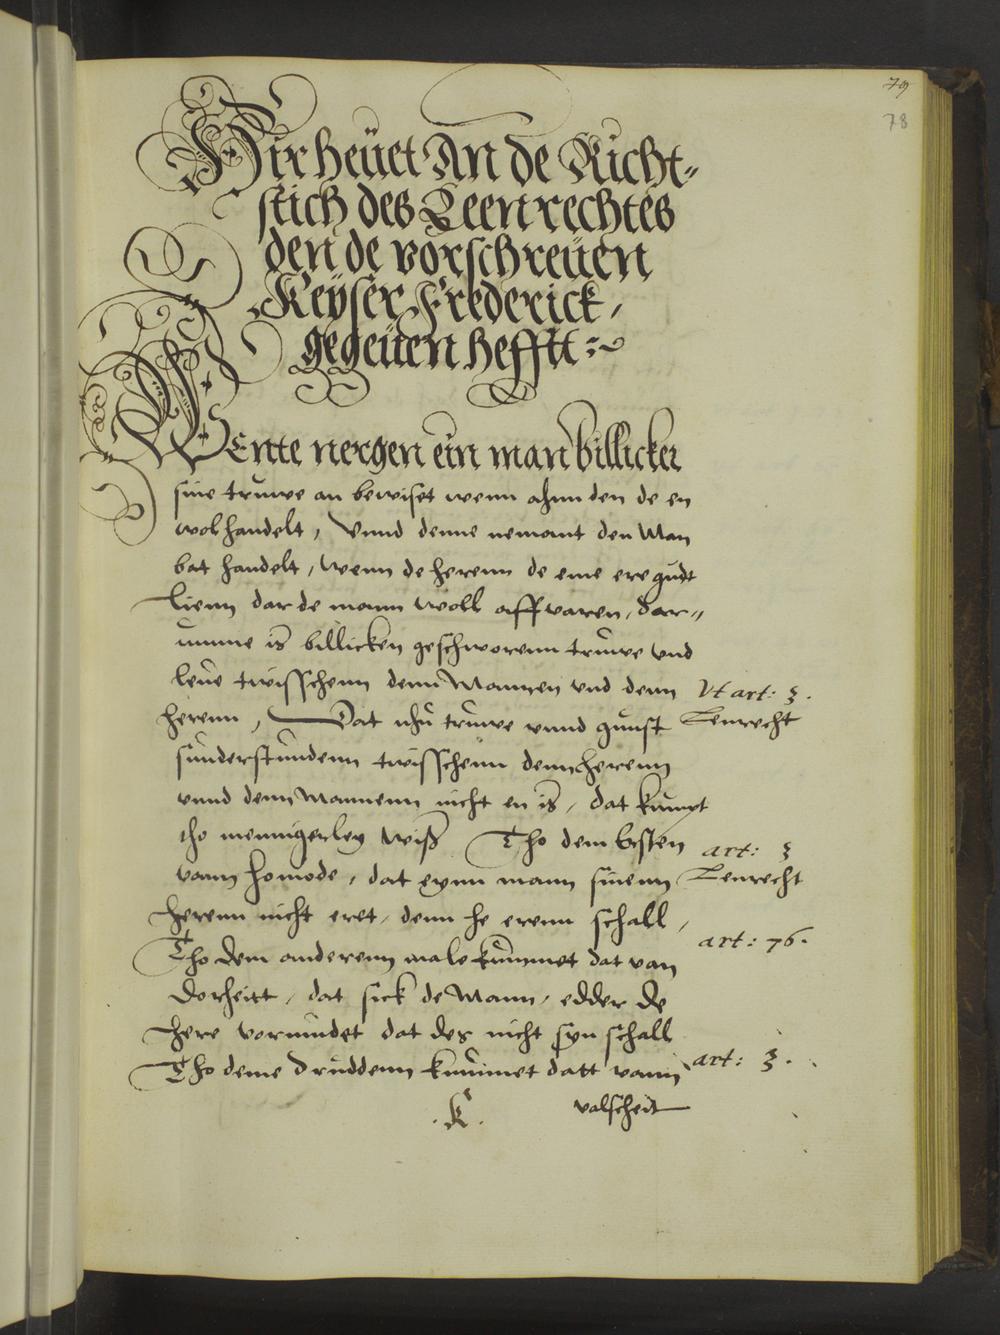 79
78
Hir heuet An de Richt⸗
stich des Leenrechtes
den de vorschreuen
Keyser Frederick,
gegeuen hefftt :~
Wente nergen ein man billicker
sine truwe an bewiset wenn ahnn den de en
wol handelt, Vnnd denne nemant den Man
bat handelt, Wenn de herenn de eme ere gudt
lienn dar de mann woll aff varen, dar⸗
umme is billicken geschworenn truwe vnd
leue twisschenn denn Mannen vnd denn
herenn, Dat nhu truwe vnnd gunst
sunderstundenn twisschenn denn herenn
vnnd denn Mannenn nicht en is, dat kumpt
tho mennigerley wiß Tho dem Ersten
vann homode, dat eynn mann sinenn
herenn nicht eret, denn he erenn schall,
Tho dem anderenn male kummet dat van
dorheitt, dat sick de Mann, edder de
here vormidet dat des nicht syn schall
Tho deme druddenn kummet datt vann
valscheit
K
Vt art: 3.
Lenrecht
art: 3
Lenrecht
art: 76.
art: 3.